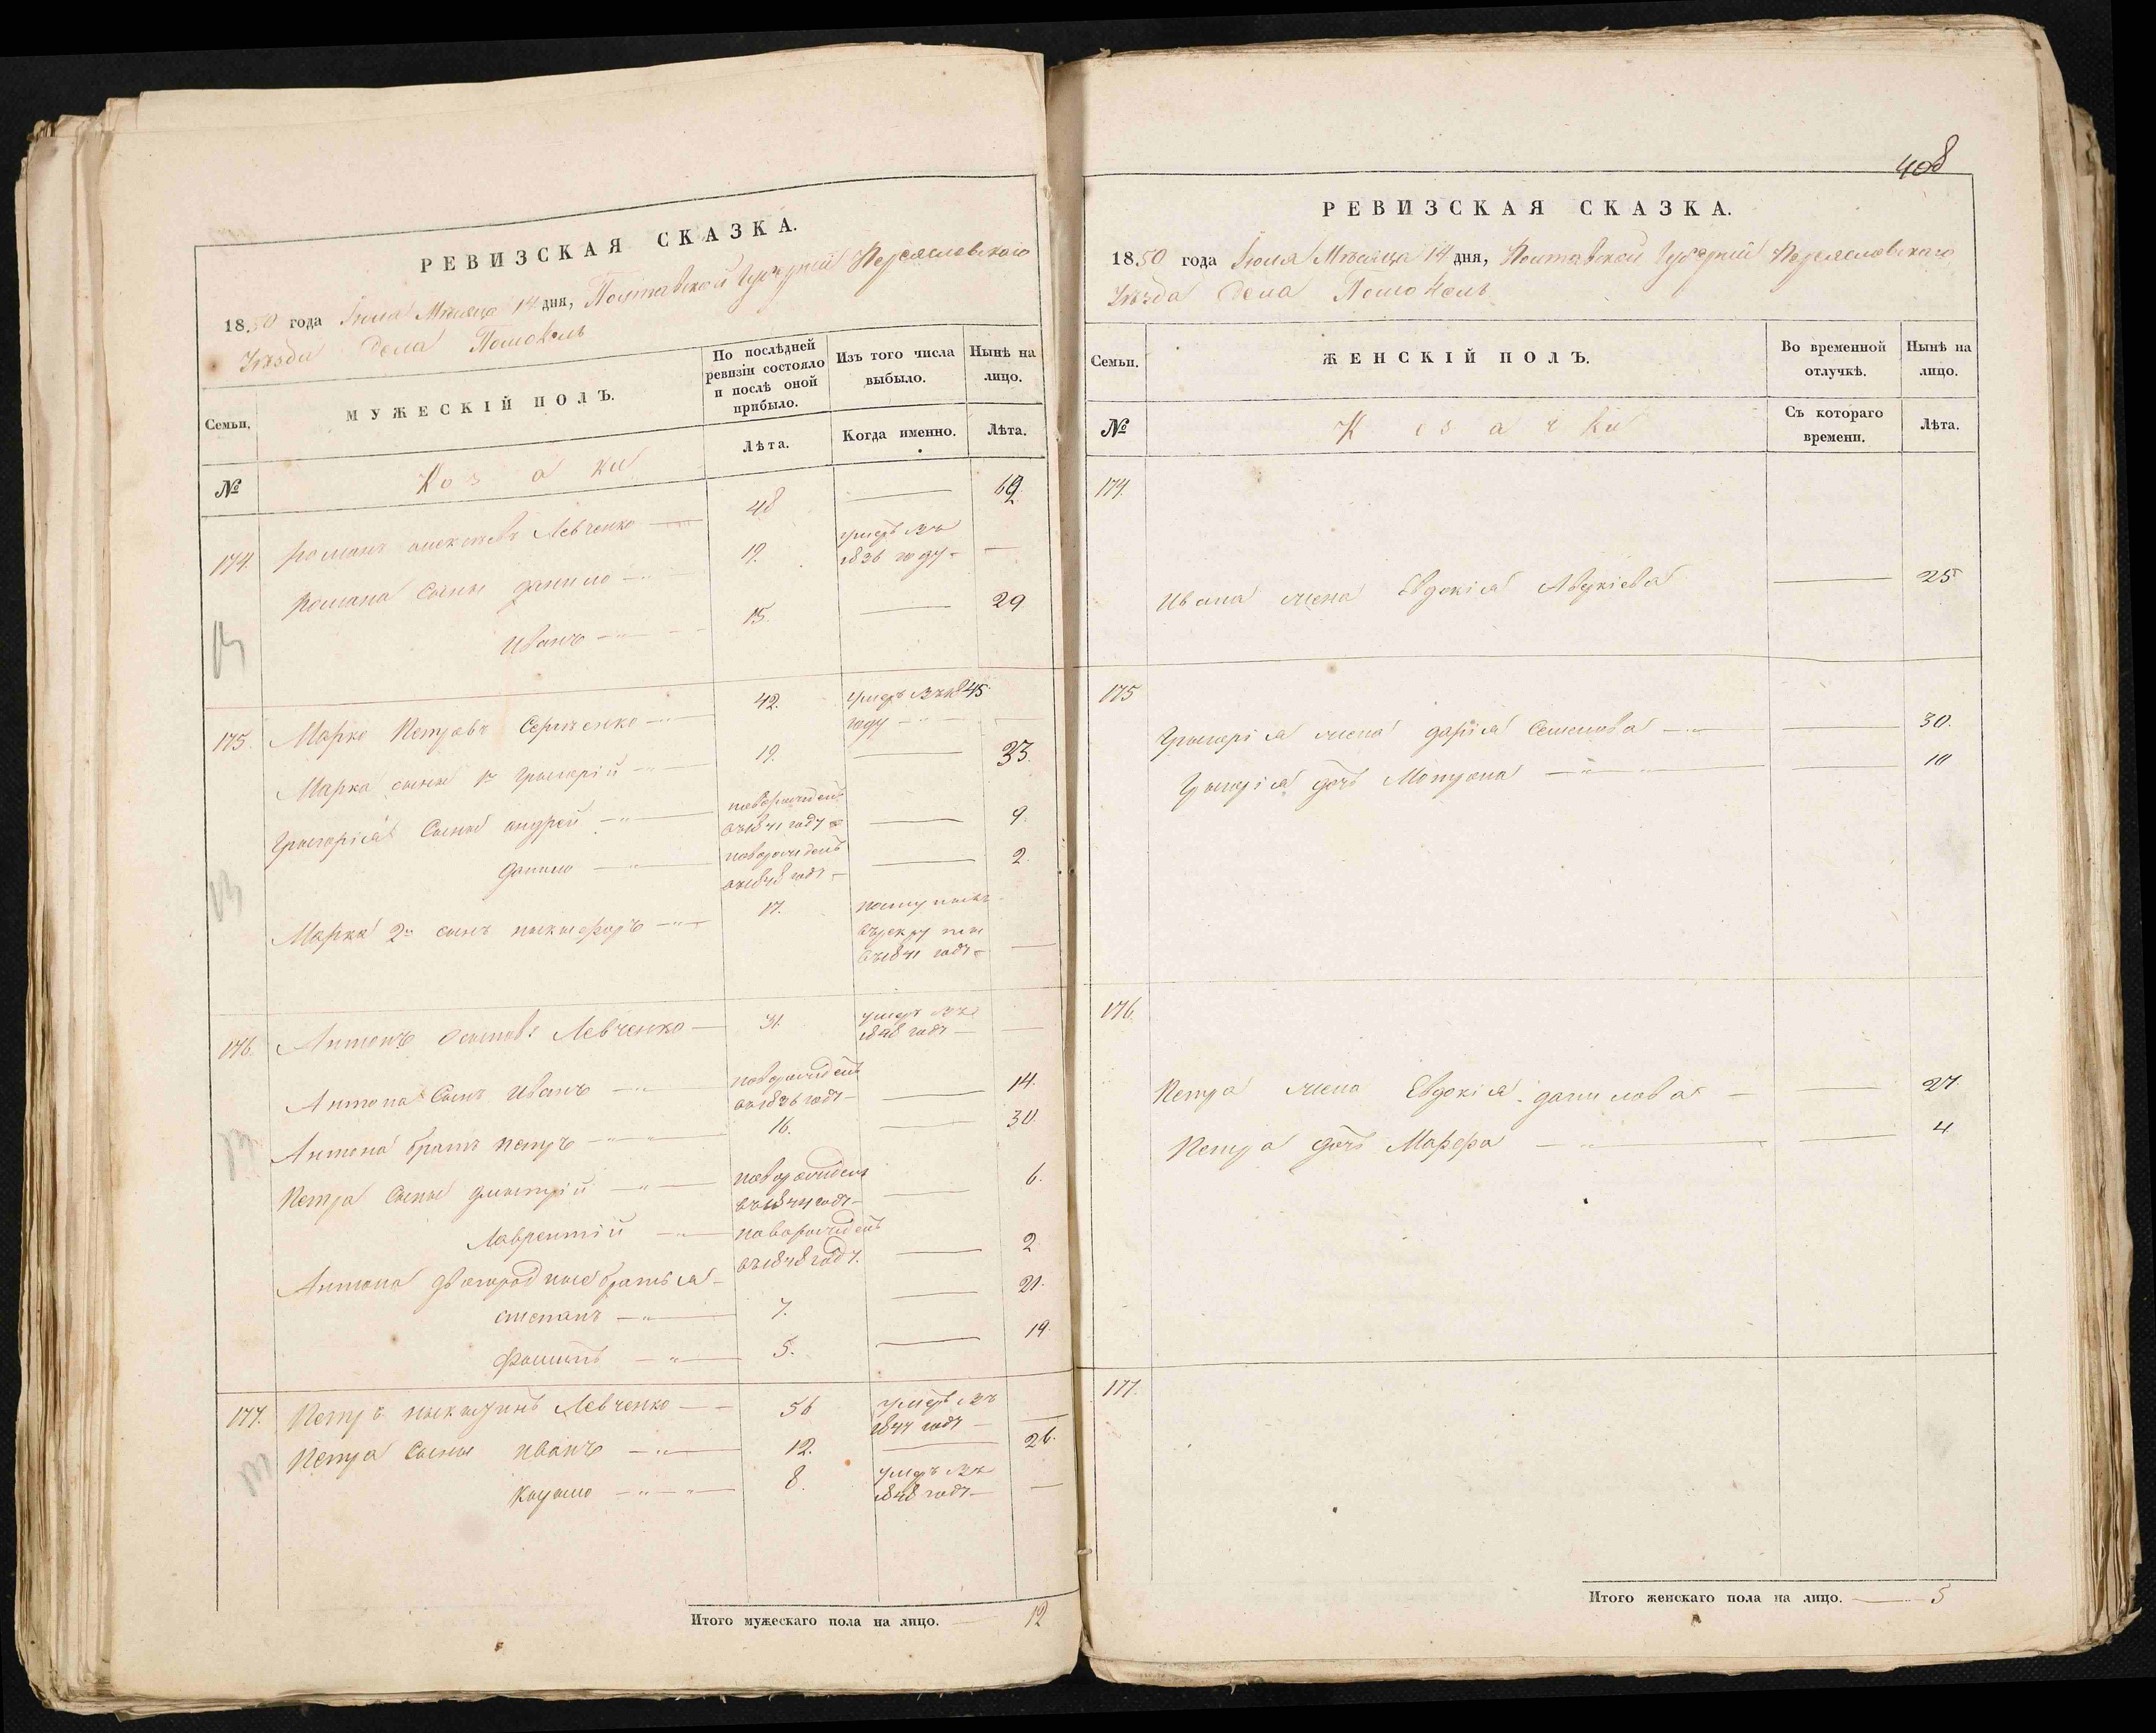 РЕВИЗСКАЯ СКАЗКА.
1850 года Іюля Мѣсяца 14 дня, Полтавской Губерніи Переяславскаго
Уѣзда Села Помоклъ
Семьи.
МУЖЕСКІЙ ПОЛЪ.
По послѣдней ревизіи состояло и послѣ оной прибыло.
Изъ того числа выбыло.
Нынѣ на лицо.
№
Козаки
Лѣта.
Когда именно.
Лѣта.
174. Романъ Алексѣевъ Левченко 48 — 62
Романа Сыны данило 19. умеръ въ
1836 году —
Иванъ 15. — 29
175. Марко Петровъ Сергіенко 42. умеръ въ 1845
году —
Марка сыны 1й Григорій 19. — 33.
Григорія Сыны андрей новорожденъ
въ 1841 году — 9.
данило новорожденъ
въ 1848 году — 2.
Марка 2й сынъ никифоръ 17. поступилъ
въ рекруты
въ 1841 году —
176. Антонъ Осиповъ Левченко 31. умеръ въ
1848 году —
Антона Сынъ Иванъ новорожденъ
въ 1836 году — 14.
Антона братъ петръ 16. — 30.
Петра Сыны дмитрій новорожденъ
въ 1844 году — 6.
Лаврентій новорожденъ
въ 1848 году. — 2
Антона двоюродные братья
степанъ 7. — 21.
Филипъ 5. — 19.
177. Петръ никитинъ Левченко 56 умеръ въ
1844 году —
Петра Сыны иванъ 12. — 26.
8. умеръ въ
1848 году —
Итого мужескаго пола на лицо. 12
408
РЕВИЗСКАЯ СКАЗКА.
1850 года Іюля Мѣсяца 14 дня, Полтавской Губерніи Переяславскаго
Уѣзда Села Помоклъ
Семьи.
ЖЕНСКІЙ ПОЛЪ.
Во временной отлучкѣ.
Нынѣ на лицо.
№
Козачки
Съ котораго времени.
Лѣта.
174.
Ивана жена Евдокія — 25
175
Григорія жена дарія Семенова — 30.
Григорія дочь Мотрона — 10
176.
Петра жена Евдокія данилова — 27.
Петра дочь Марфа — 4
177.
Итого женскаго пола на лицо. — 5